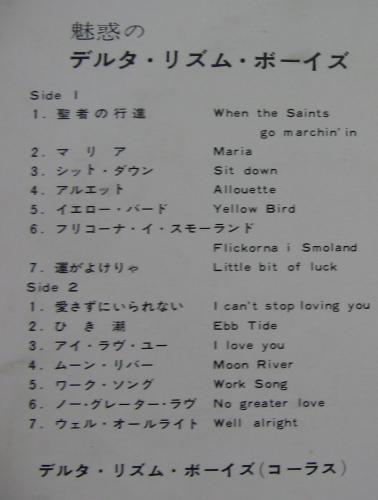 魅惑の
デルタ・リズム・ボーイズ
Side 1
1. 聖者の行進 When the Saints
go marchin' in
2. マリア Maria
3. シット・ダウン Sit down
4. アルエット Allouette
5. イエロー・バード Yellow Bird
6. フリコーナ・イ・スモーランド
Flickorna i Smoland
7. 運がよけりゃ Little bit of luck
Side 2
1. 愛さずにいられない I can't stop loving you
2. ひき潮 Ebb Tide
3. アイ・ラヴ・ユー I love you
4. ムーン・リバー Moon River
5. ワーク・ソング Work Song
6. ノー・グレーター・ラヴ No greater love
7. ウェル・オールライト Well alright
デルタ・リズム・ボーイズ(コーラス)